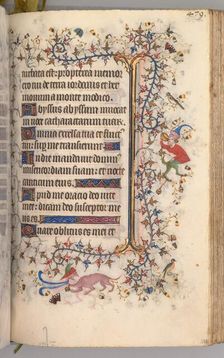 turbata est: propterea memor
ero tui de terra iordanis et her
monium a monte modico.
Abyssus abyssum inuocat
in uoce cataractarum tuarum.
Omnia excelsa tua et fluct
tui super me transierunt.
In die mandauit domin
misericordiam suam: et nocte
canticum eius.
Apud me oracio deo uite
mee: dicam deo susceptor me
us es.
Quare oblitus es mei et
479